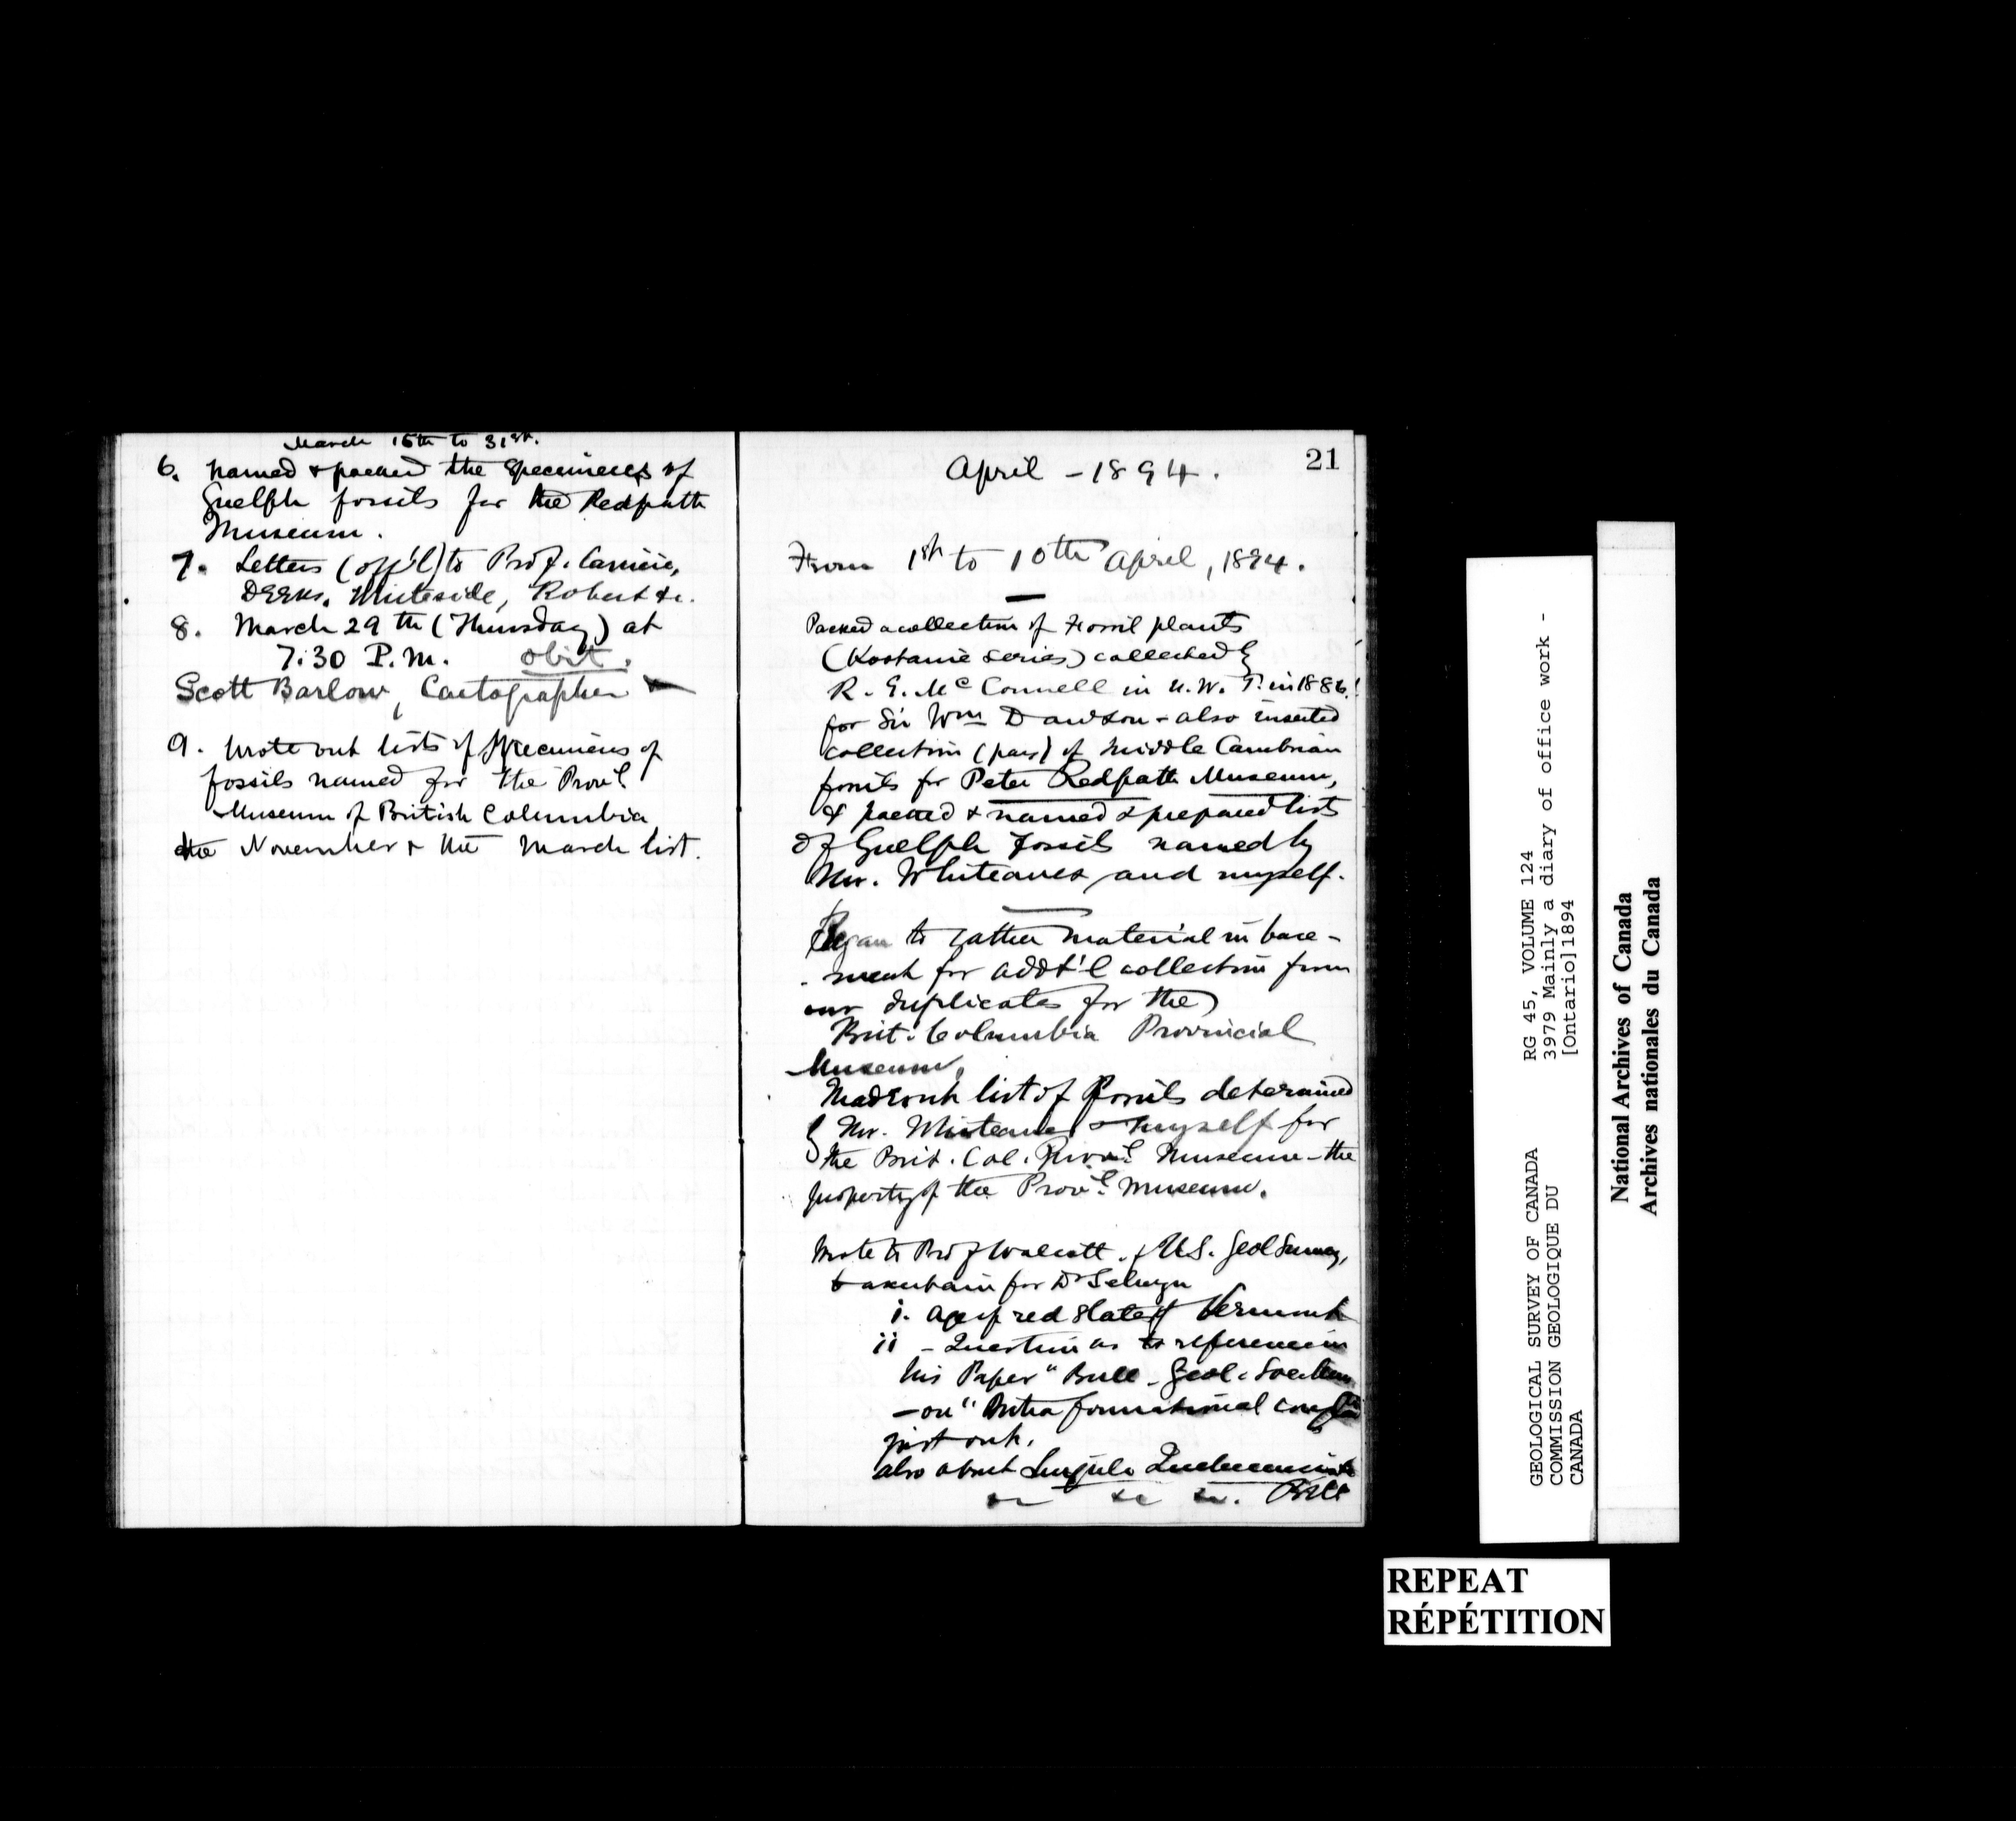 March 16th to 31st.
6. Named & packed the specimens of
Guelph fossils for the Redpath
Museum.
7. Letters (off'l) to Prof.
Deeks, Whiteside, Robert &c.
8. March 29th (Thursday) at
7:30 P.M. obit.
Scott Barlow, Cartographer
9. Wrote out lists of specimens of
fossils named for the Prov'l
Museum of British Columbia
the November & the March list.
21
April - 1894.
From 1st to 10th April, 1894.
Packed a collection of Fossil plants
(Kootanie series) collected by
R. G. McConnell in N.W.T. in 1886
for Sir Wm Dawson - also inserted
collection (part) of Middle Cambrian
fossils for Peter Redpath Museum,
& packed & named & prepared lists
of Guelph Fossils named by
Mr. Whiteaves and myself.
Began to gather material in base-
ment for add't'l collection from
our duplicates for the
Brit. Columbia Provincial
Museum.
Made out list of Fossils determined
by Mr. Whiteaves & myself for
the Brit. Col. Prov'l Museum - the
property of the Prov'l Museum.
Wrote to Prof Walcott of U.S. Geol Survey,
to ascertain for Dr Selwyn
i. Age of red slates of Vermont
ii - Question as to reference in
his Paper "Bull. Geol. Soc. Am
- on "Intra formational
just out.
also about Lingula Quebecensis
&c &c &c. Bill
GEOLOGICAL SURVEY OF CANADA
COMMISSION GEOLOGIQUE DU
CANADA
RG 45, VOLUME 124
3979 Mainly a diary of office work -
[Ontario]1894
National Archives of Canada
Archives nationales du Canada
REPEAT
RÉPÉTITION